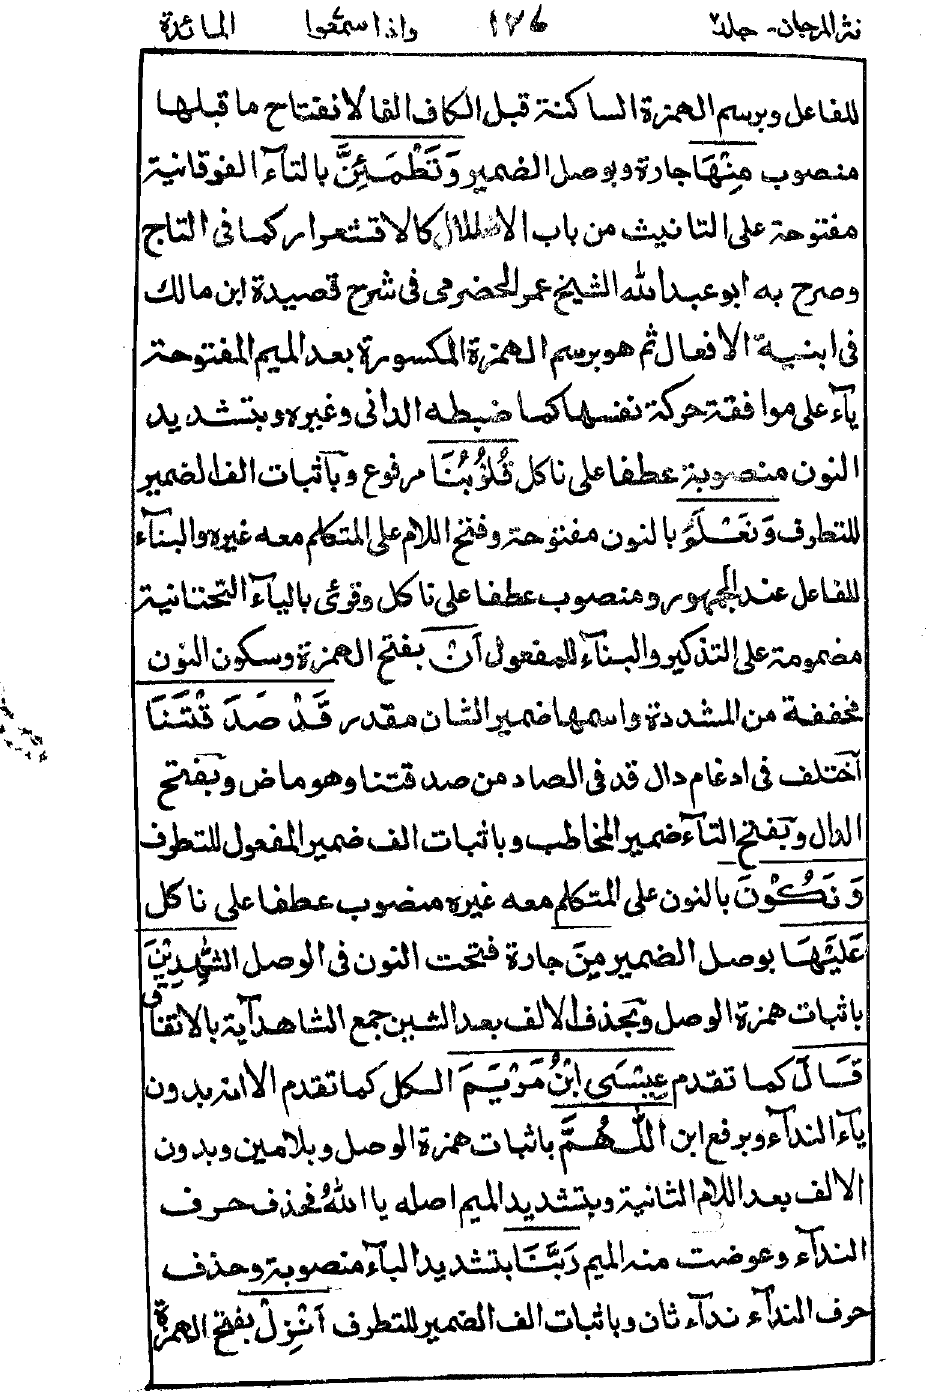 نثر المرجان - جلد ٢ ١٧٦ واذا سمعوا المائدة
للفاعل وبرسم الهمزة الساكنة قبل الكاف الفا لانفتاح ما قبلها
منصوب مِنْهَا جارة وبوصل الضمير وَتَطْمَئِنَّ بالتآء الفوقانية
مفتوحة على التانيث من باب كالاقشعرار كما فى التاج
وصرح به ابو عبد الله الشيخ عمر الحضرمى فى شرح قصيدة ابن مالك
فى ابنية الافعال ثم هو برسم الهمزة المكسورة بعد الميم المفتوحة
يآء على موافقة حركة نفسها كما ضبطه الدانى وغيره وبتشديد
النون منصوبة عطفا على ناكل قُلُوْبُنَا مرفوع وباثبات الف الضمير
للتطرف وَنَعْلَمَ بالنون مفتوحة وفتح اللام على المتكلم معه غيره والبنآء
للفاعل عند الجمهور ومنصوب عطفا على ناكل وقرئ باليآء التحتانية
مضمومة على التذكير والبنآء للمفعول اَنْ بفتح الهمزة وسكون النون
مخففة من المشددة واسمها ضمير الشان مقدر قَدْ صَدَقْتَنَا
اختلف فى ادغام دال قد فى الصاد من صدقتنا وهو ماض وبفتح
الدال وبفتح التآء ضمير المخاطب وباثبات الف ضمير المفعول للتطرف
وَنَكُوْنَ بالنون على المتكلم معه غيره منصوب عطفا على ناكل
عَلَيْهَا بوصل الضمير مِنَ جارة فتحت النون فى الوصل الشّٰهِدِيْنَ
باثبات همزة الوصل وبحذف الالف بعد الشين جمع الشاهد آية بالاتفاق
قَالَ كما تقدم عِيْسَى ابْنُ مَرْيَمَ الكل كما تقدم الا انه بدون
يآء الندآء وبرفع ابن اللّٰهُمَّ باثبات همزة الوصل وبلامين وبدون
الالف بعد اللام الثانية وبتشديد الميم اصله يا اللهُ فحذف حرف
الندآء وعوضت منه الميم رَبَّنَا بتشديد البآء منصوبة وحذف
حرف الندآء ندآء ثان وباثبات الف الضمير للتطرف اَنْزِلْ بفتح الهمزة